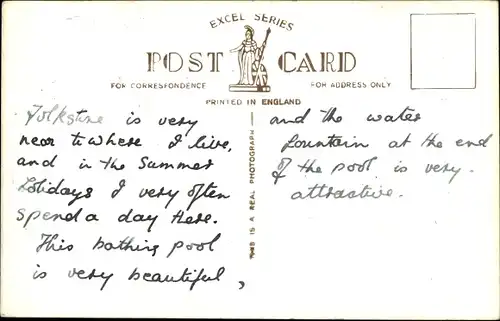 EXCEL SERIES
POST CARD
FOR CORRESPONDENCE
FOR ADDRESS ONLY
PRINTED IN ENGLAND
Folkstone is very
near to where I live,
and in the Summer
Holidays I very often
spend a day there.
This bathing pool
is very beautiful,
THIS IS A REAL PHOTOGRAPH
and the water
fountain at the end
of the pool is very
attractive.